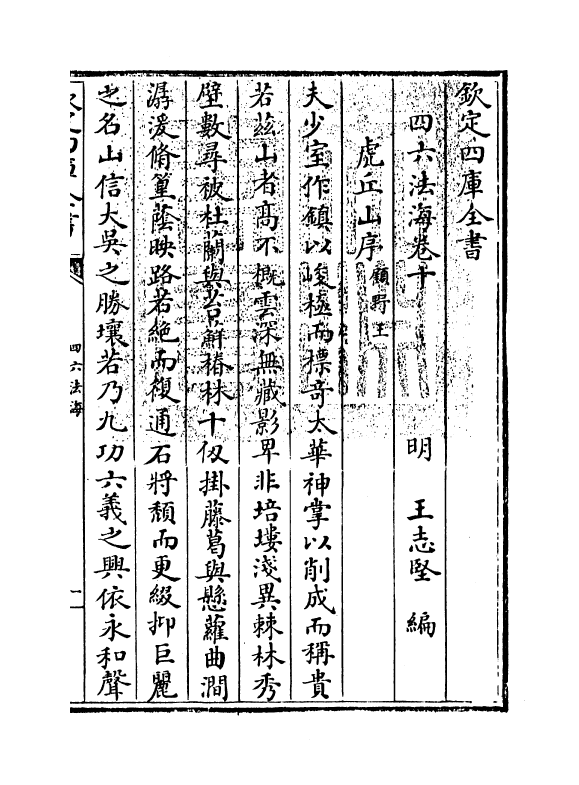 欽定四庫全書
四六法海卷十
明 王志堅 編
虎丘山序 顧野王
夫少室作鎮以峻極而標奇太華神掌以削成而稱貴
若茲山者髙不概雲深無藏影卑非培塿淺異棘林秀
壁數尋被杜蘭與苔蘚椿林十仭掛藤葛與懸蘿曲澗
潺湲脩篁蔭映路若絶而復通石將頹而更綴抑巨麗
之名山信大吳之勝壤若乃九功六義之興依永和聲
四六法海